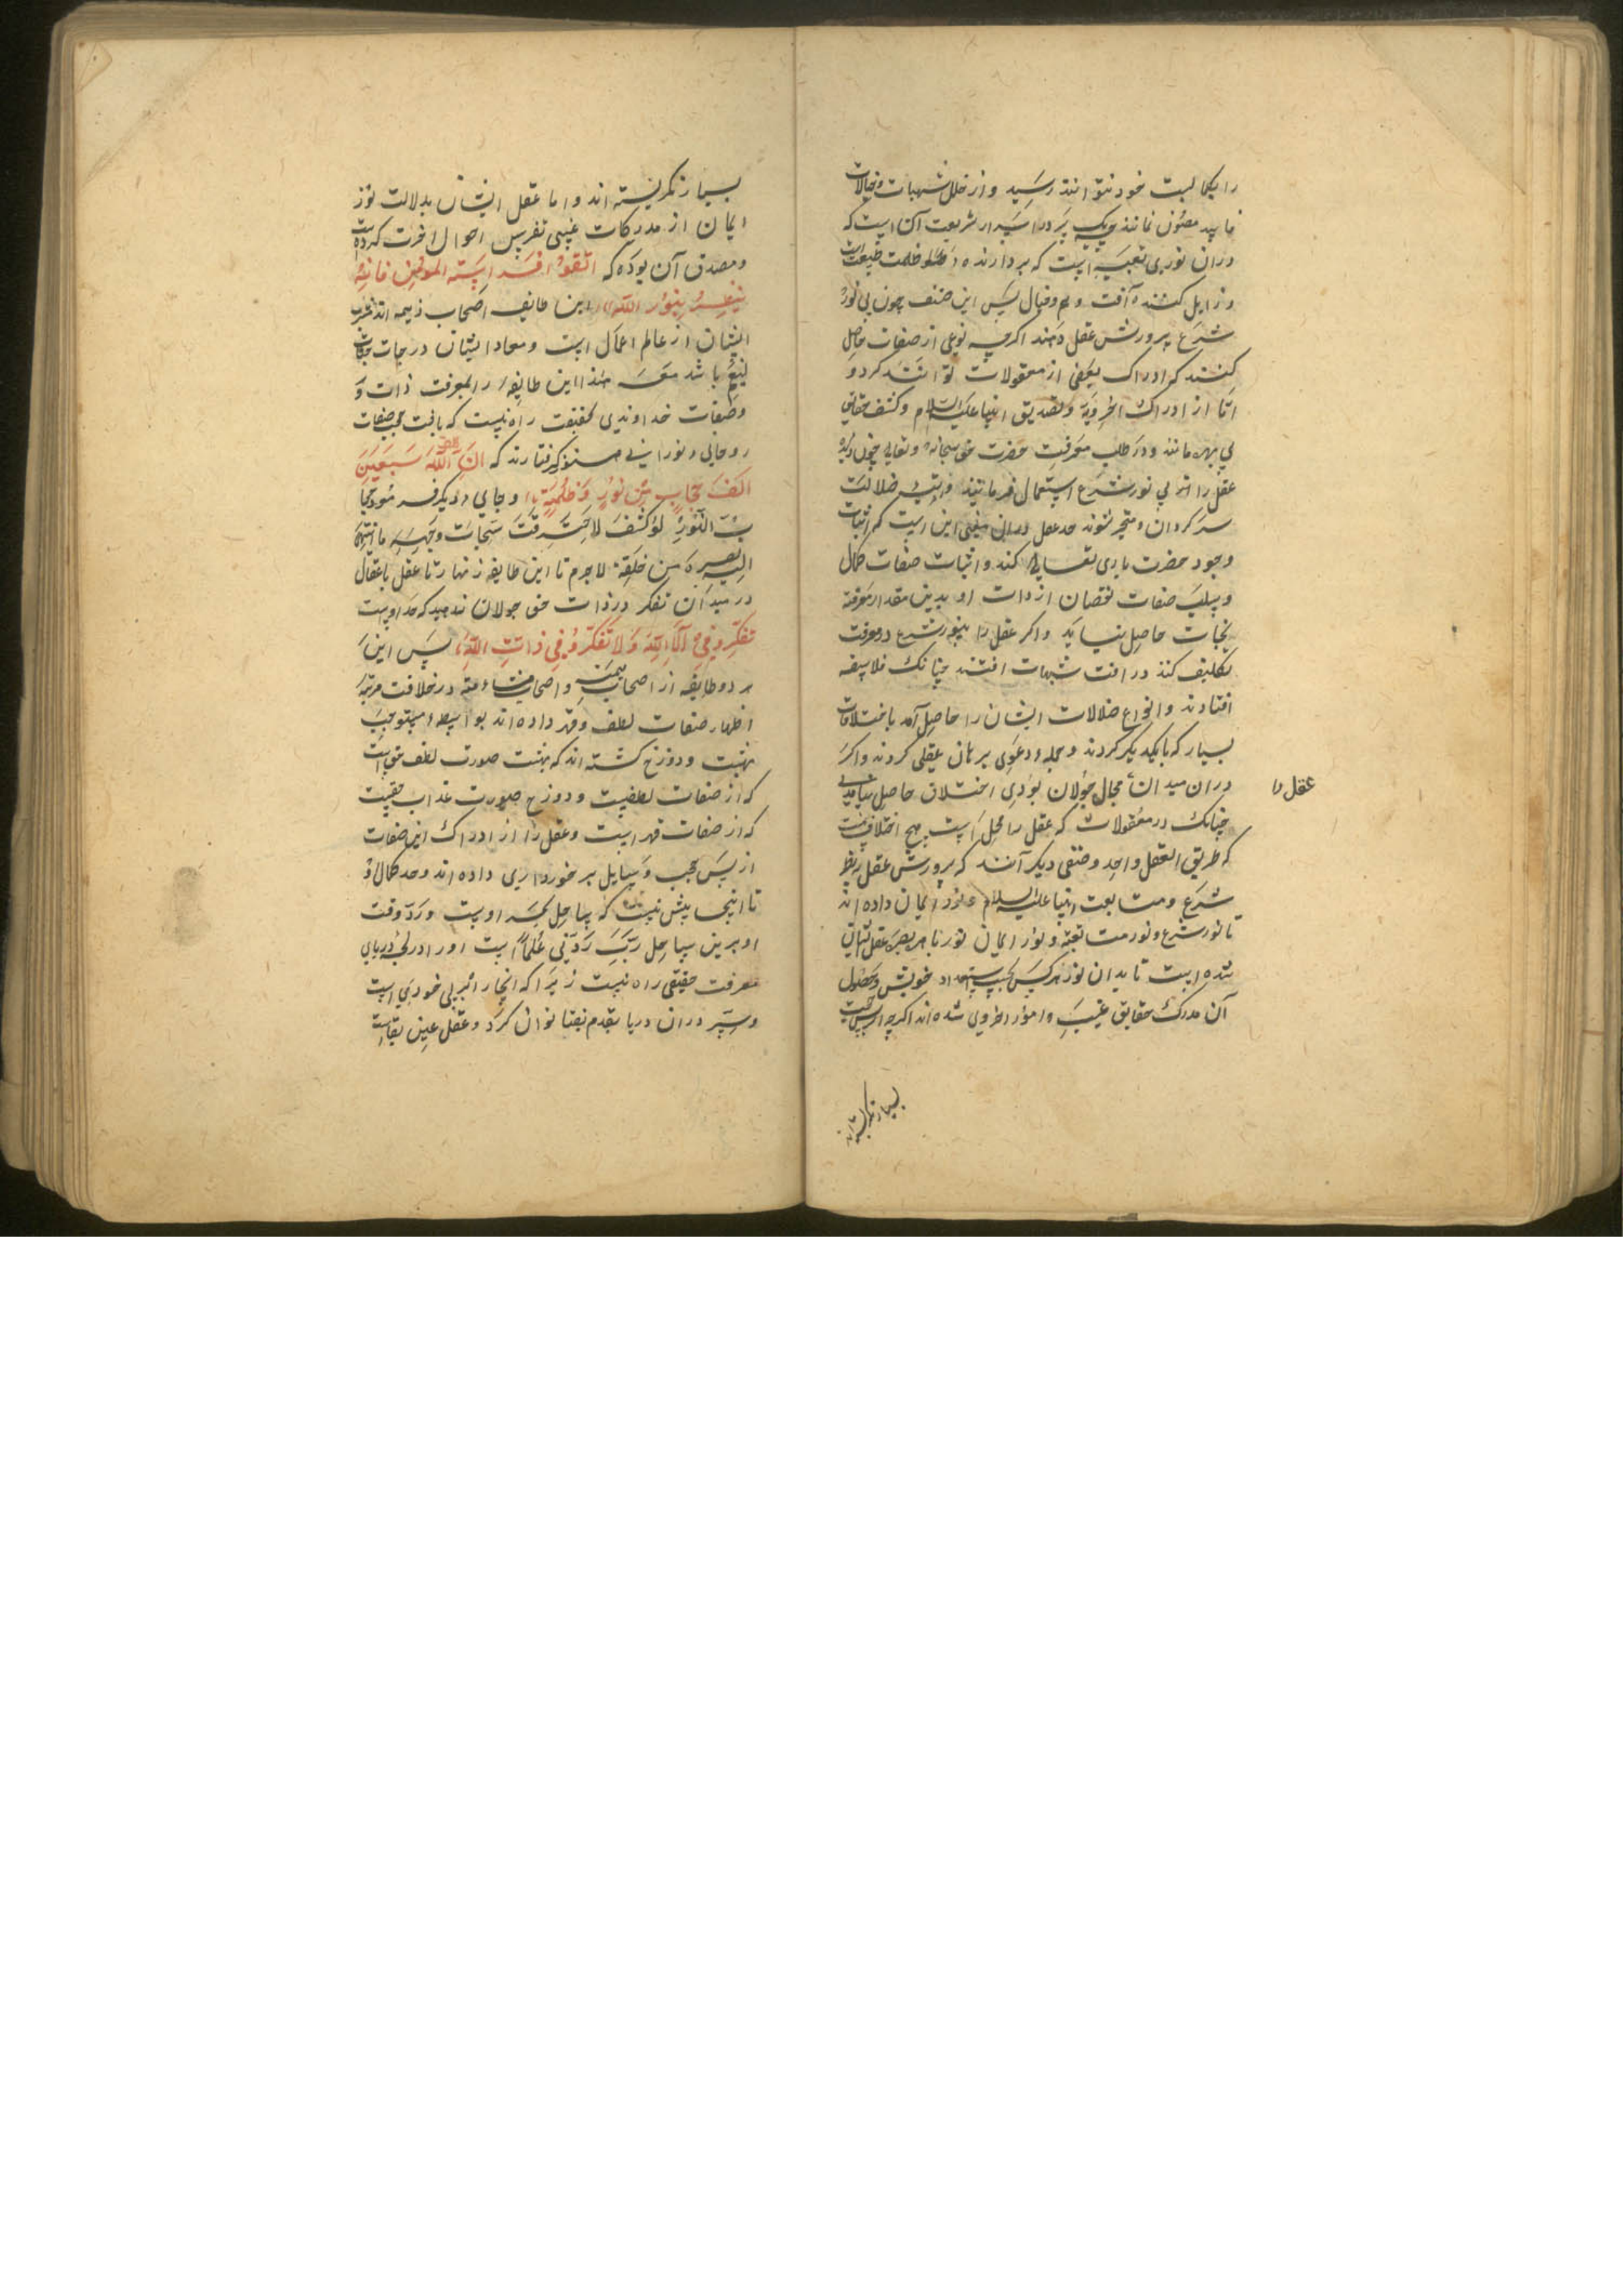 را بکمالیت خود نتوانند رسید و از خلل شبهات و خیالات
فاسد مصئون نمانند چه یک سر در اسرار شریعت آن است که
در آن نوری تعبیه است که بردارنده ظلمت طبیعت است
و زایل کننده آفت وهم و خیال پس این صنف چون بی نور
شرع پرورش عقل دهند اگرچه نوعی از صفات حاصل
کنند که ادراک بعضی از معقولات توانند کرد و
اما از ادراک اخرویه و تصدیق انبیا علیه السلام و کشف حقایق
بی بهره مانند و در طلب معرفت حضرت حق سبحانه و تعالی چون دیده
عقل را در بی نور شرع استعمال فرمایند در تیه ضلالت
سرگردان و متحیر شوند حد عقل در این معنی این است که اثبات
وجود حضرت باری تعالی کند و اثبات صفات کمال
و سلب صفات نقصان از ذات او بدین مقدار معرفة
نجات حاصل نیاید و اگر عقل را بینور شرع در معرفت
تکلیف کنند در آفت شبهات افتند چنانک فلاسفه
افتادند و انواع ضلالات ایشان را حاصل آمد باختلافات
بسیار که با یکدیگر کردند و جمله دعوی برهان عقلی کردند و اگر
عقل را
در آن میدان مجال جولان بودی اختلاف حاصل نیامدی
چنانک در معقولات که عقل را مجال است هیچ اختلاف نیست
که طریق العقل واحد و صنفی دیگر آنند که پرورش عقل بنظر
شرع و متابعت انبیا علیه السلام و نور ایمان داده اند
تا نور شرع و نور متابعة و نور ایمان نور باصره بصر عقل ایشان
شده است تا بدان نور هر کس بحسب استعداد خویش و حصول
آن مدرک حقایق غیب و امور اخروی شده اند اگرچه از پس
بسیار نگریسته اند
بسیار نگریسته اند و اما عقل ایشان بدلالت نور
ایمان از مدرکات غیبی تفرس احوال آخرت کرده است
و مصدق آن بوده که اتقوا فراسة المومن فانه
ینظر بنور الله این طایفه اصحاب میمنه اند مشرب
ایشان از عالم اعمال است و معاد ایشان درجات جنات
نعیم باشد معهذا این طایفه را بمعرفت ذات و
و صفات خداوندی بحقیقت راه نیست که بآفت حجب صفات
روحانی نورانی هنوز گرفتارند که ان لله سبعین
الف حجاب من نور و ظلمة و جای دیگر فرمود حجا
به النور لو کشف لاحترقت سبحات وجهه ما انتهی
الیه بصره من خلقه لاجرم تا این طایفه زنهار تا عقل با عقال
در میدان تفکر در ذات حق جولان ندهید که حد او نیست
تفکروا فی آلاء الله ولا تفکروا فی ذات الله پس این
هر دو طایفه از اصحاب میمنه و اصحاب مشأمه در خلافت مرتبه
اظهار صفات لطف و قهر داده اند بواسطه مستوجب
بهشت و دوزخ گشته اند که بهشت صورت لطف حق است
که از صفات لطفست و دوزخ صورت عذاب حقست
که از صفات قهر است و عقل را از ادراک این صفات
از پس حجب و وسایل برخورداری داده اند و حد کمال او
تا اینجا بیش نیست که ساحل بحر اوست و رد وقت
او برین ساحل رب زدنی علماً است او را در لجه دریای
معرفت حقیقی راه نیست زیرا که آنجا راهبر بی خودی است
و سیر در آن دریا بقدم فنا توان کرد و عقل عین بقاست